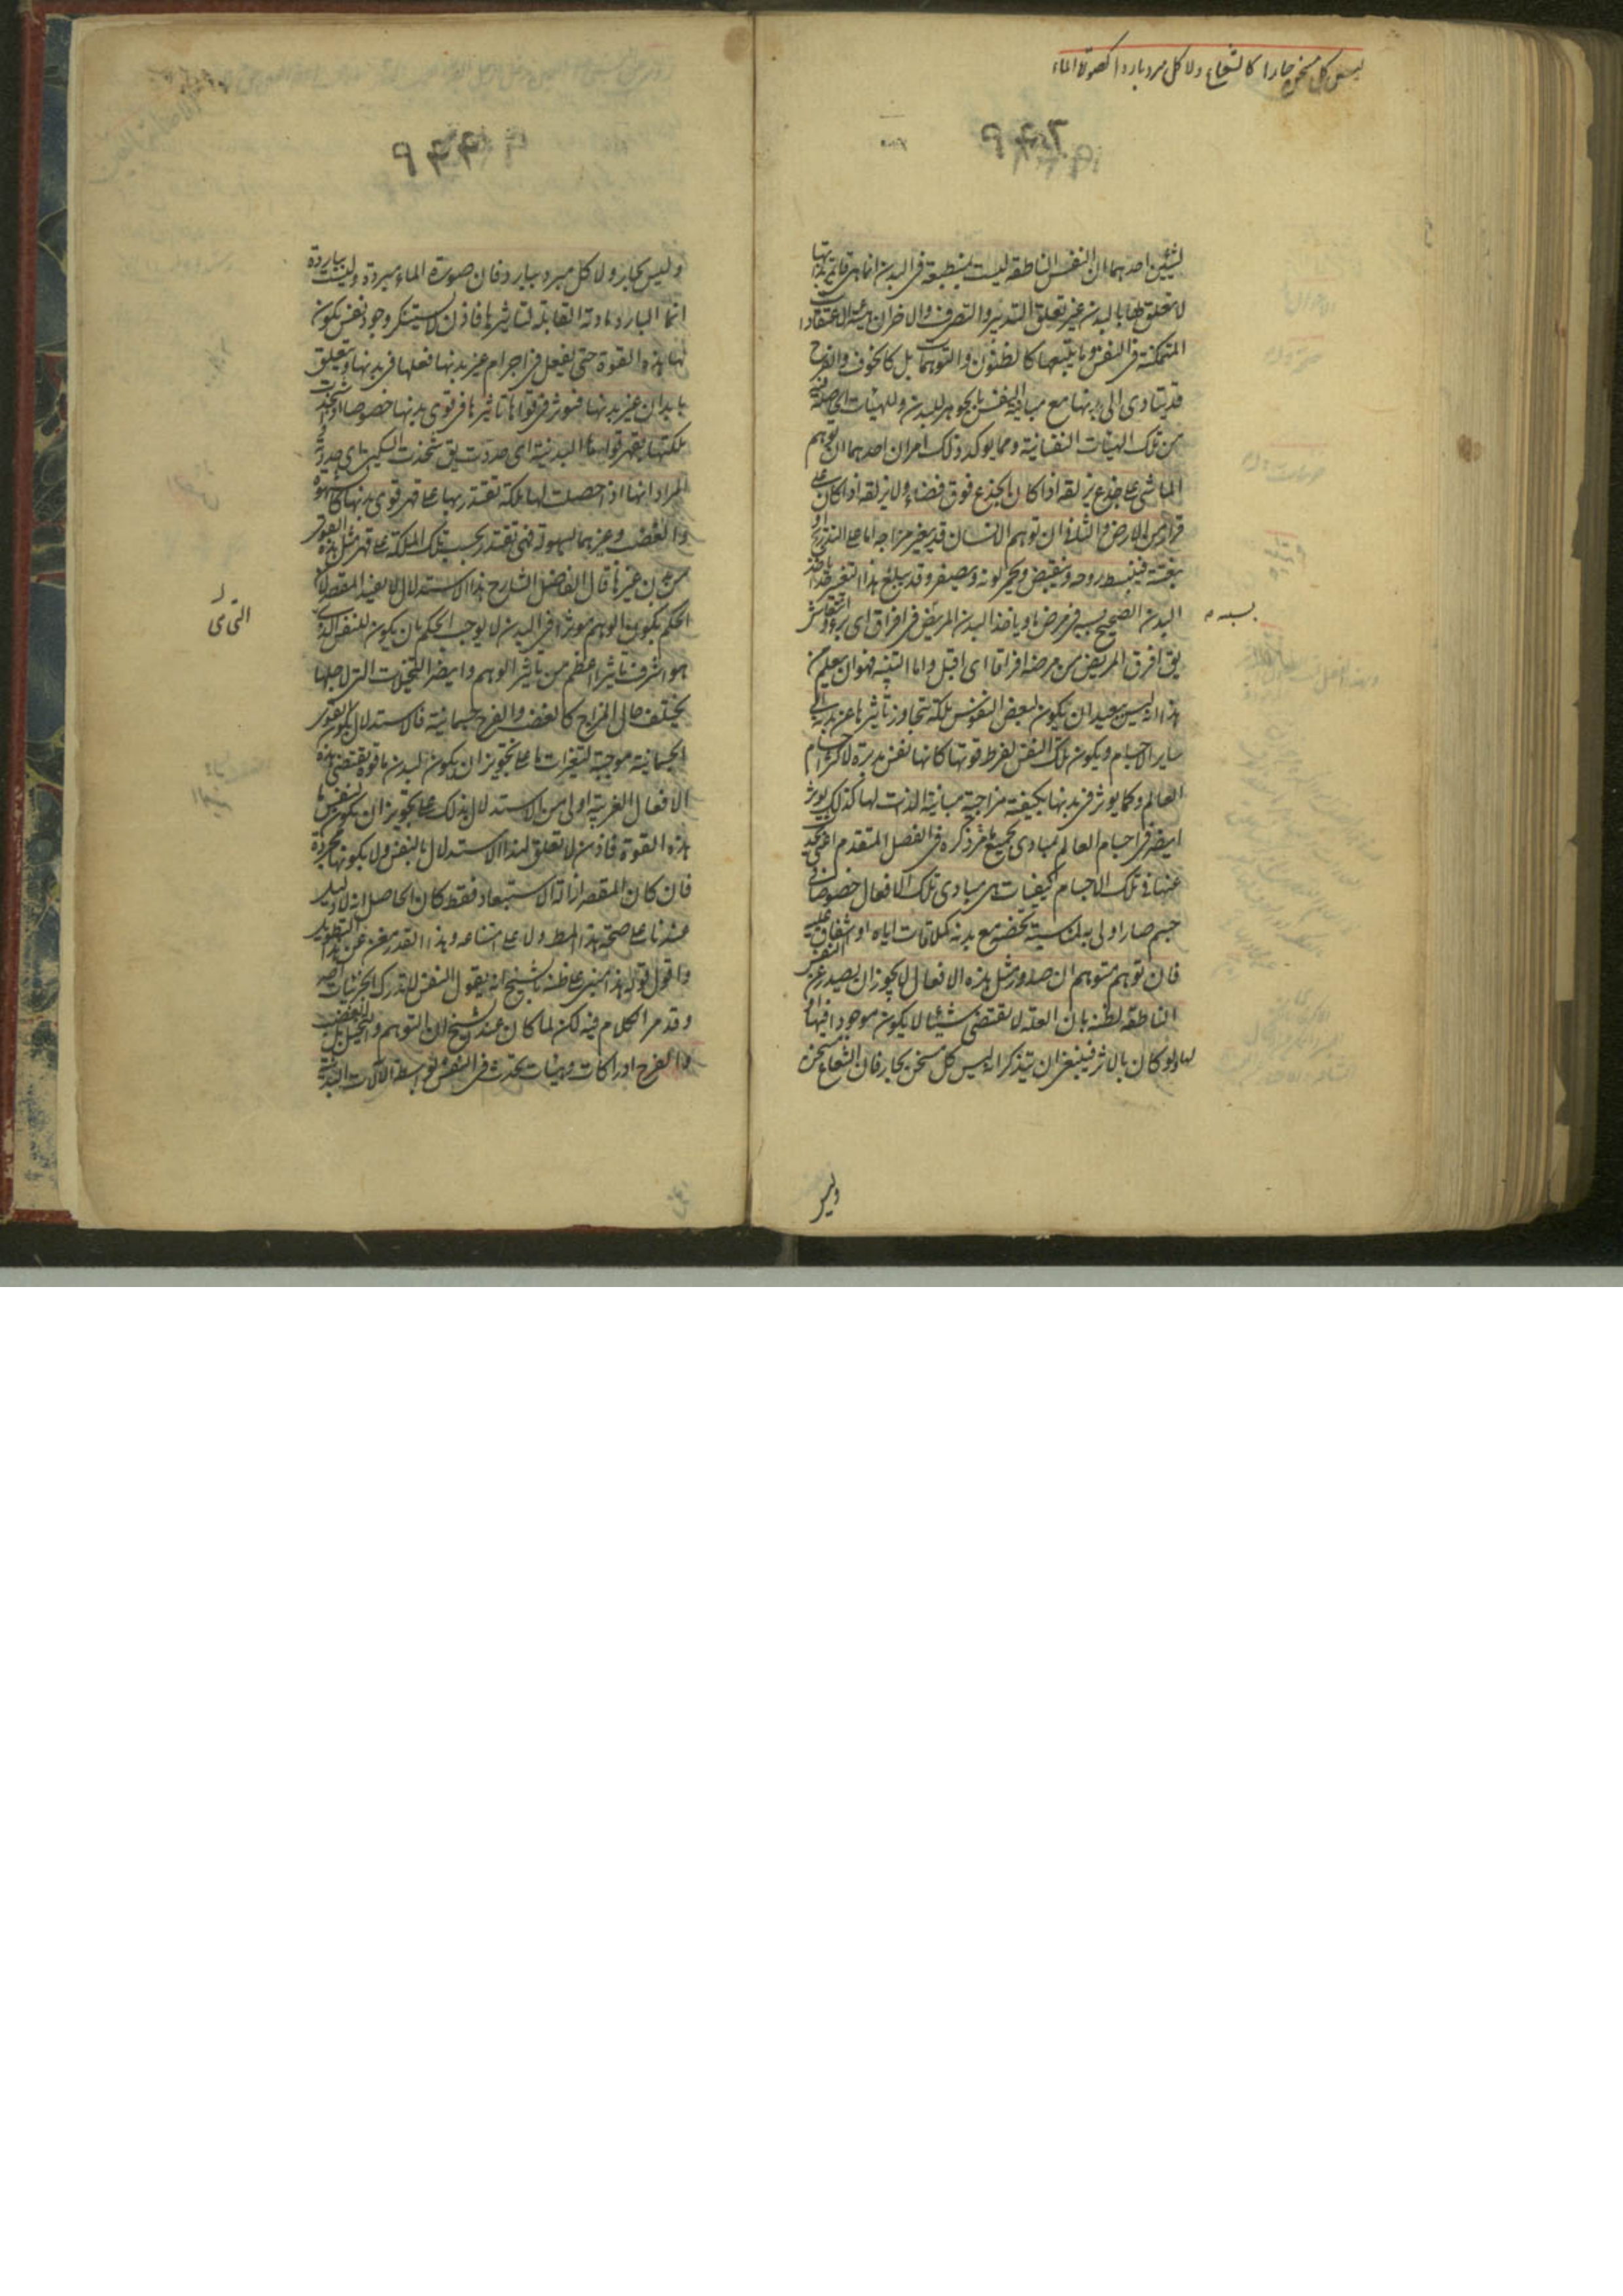 ليس كل مسخن حارا كالشعاع ولا كل مبرد باردا كصورة الماء
لشيئين احدهما ان النفس الناطقة ليست بمنطبعة في البدن انما هي قايمة بذاتها
لا تعلق لها بالبدن غير تعلق التدبير والتصرف والاخر ان هيئة الاعتقادات
المتمكنة في النفس وما يتبعها كالظنون والتوهمات بل كالخوف والفرح
قد يتادى الى بدنها مع مباينة النفس بالجوهر للبدن وللهيئات الحاصلة فيه
من تلك الهيئات النفسانية ومما يوكد ذلك امران احدهما ان توهم
الماشي على جذع يزلقه اذا كان الجذع فوق فضاء ولا يزلقه اذا كان على
قرار من الارض والثاني ان توهم الانسان قد يغير مزاجه اما على التدريج او
بغتة فينبسط روحه وينقبض ويحمر لونه ويصفر وقد يبلغ هذا التغير حدا ياخذ
البدن الصحيح بسببه في مرض ما وياخذ البدن المريض في افراق اي برء وانتعاش
يق افرق المريض من مرضه افراقا اي اقبل واما التنبيه فهو ان يعلم من
هذا انه ليس ببعيد ان يكون لبعض النفوس ملكة يتجاوز تاثيرها عن بدنه الى
ساير الاجسام ويكون تلك النفس لفرط قوتها كانها نفس مدبرة لاكثر اجسام
العالم وكما يوثر في بدنها بكيفية مزاجية مباينة الذات لها كذلك يوثر
ايضا في اجسام العالم بمبادي لجميع ما مر ذكره في الفصل المتقدم اعني يحدث
عنها في تلك الاجسام كيفيات هي مبادي تلك الافعال خصوصا في
جسم صار اولى به لمناسبة تخصه مع بدنه كملاقات اياه او اشفاق عليه
فان توهم متوهم ان صدور مثل هذه الافعال لا يجوز ان يصدر عن النفس
الناطقة لظنه بان العلة لا تقتضي شيئا لا يكون موجودا فيها او
لها ولو كان بالاثر فينبغي ان يتذكر انه ليس كل مسخن بحار فان الشعاع مسخن
وليس
وليس بحار ولا كل مبرد ببارد فان صورة الماء مبردة وليست بباردة
انما البارد مادته القابلة لتاثيرها فاذن لا يستنكر وجود نفس يكون
لها هذه القوة حتى يفعل في اجرام غير بدنها فعلها في بدنها ويتعلق
بابدان غير بدنها فيوثر في قواها تاثيرها في قوى بدنها خصوصا اذا شحذت
ملكتها بقهر قواها البدنية اي حددت يق شحذت السكين اي حددته و
المراد انها اذا حصلت لها ملكة تقتدر بها على قهر قوى بدنها كالشهوة
والغضب وغيرهما بسهولة فهي تقتدر بحسب تلك الملكة على قهر مثل هذه القوى
من بدن غيرها قال الفاضل الشارح هذا الاستدلال لا يفيد المقصد لان
الحكم بكون الوهم موثرا في البدن لا يوجب الحكم بان يكون للنفس الذي
هو اشرف تاثيرا اعظم من تاثير الوهم وايضا التخيلات التي لاجلها
يختلف حال المزاج كالغضب والفرح جسمانية فالاستدلال بكون القوى
الجسمانية موجبة لتغيرات ما على تجويز ان يكون لبدن ما قوة تقتضي هذه
الافعال الغريبة اولى من الاستدلال بذلك على تجويز ان يكون لنفس ما
هذه القوة فاذن لا تعلق لهذا الاستدلال بالنفس ولا بكونها مجردة
فان كان المقصد ازالة الاستبعاد فقط كان الحاصل انه لا دليل
عندنا على صحة هذا المط ولا على امتناعه وهذا القدر مغن عن هذا التطويل
واقول قوله هذا مبني على ظنه بالشيخ انه يقول النفس لا تدرك الجزئيات اصلا
وقد مر الكلام فيه لكن لما كان عند الشيخ ان التوهم والتخيل بل الغضب
والفرح ادراكات وهيئات تحدث في النفس بتوسط الالات البدنية